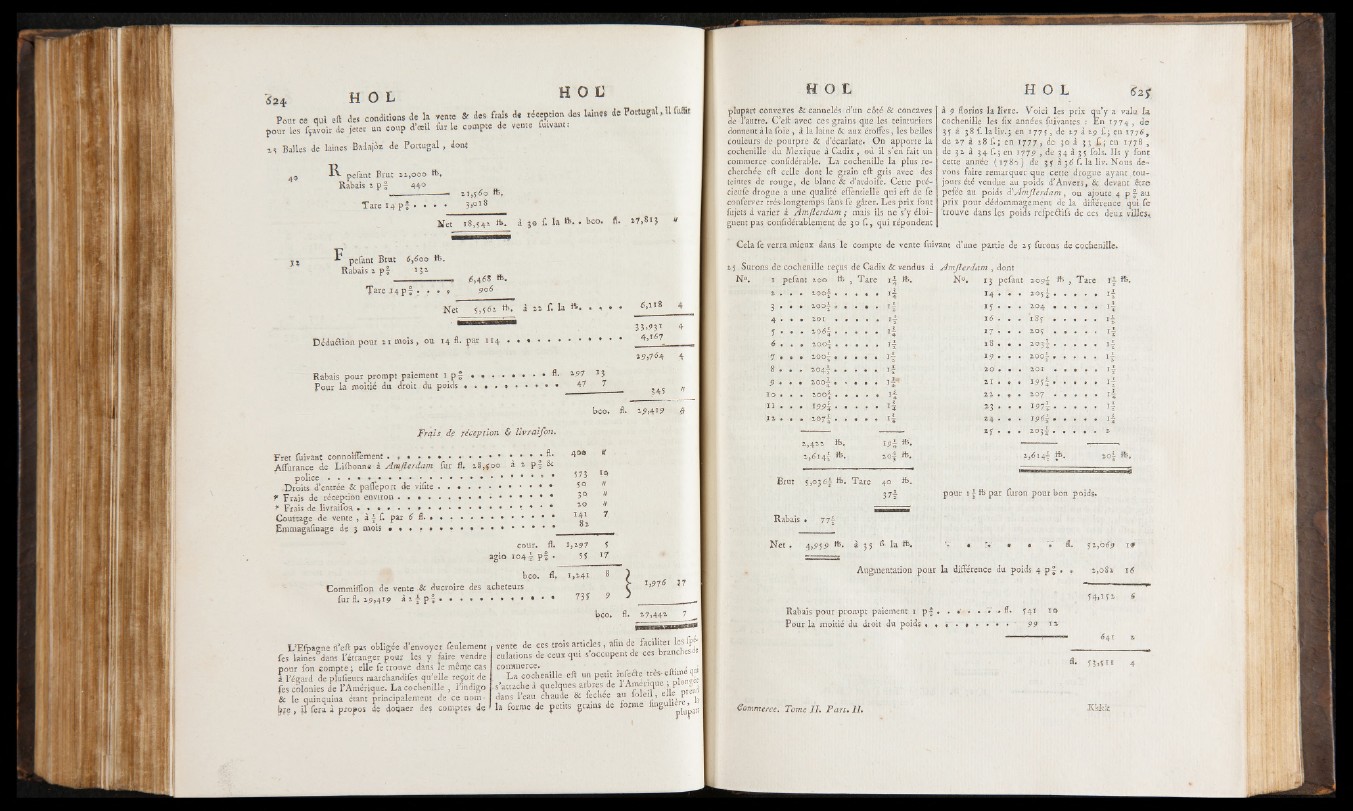 624 HOL HOL
Pour ce qui eſt des conditions de la vente & des frais de réception des laines de Portugal, il ſuffit
pour les ſçavoir de jeter un coup d'œil ſur le compte de vente ſuivant:
25 Balles de laines Badajòz de Portugal, dont
40 R peſant Brut 22,000 ℔.
Rabais 2 p 0/0 440
21,560 ℔.
Tare 14 p 0/0 . . . . 3,018
Net 18,542 ℔. à 30 ſ. la ℔. . bco. fl. 27,813 "
32 F peſant Brut 6,600 ℔.
Rabais 2 p 0/0 132
6,468 ℔.
Tare 14 p 0/0 . . . . 906
Net 5,562 ℔. à 22 ſ. la ℔. . . . . 6,118 4
33,931 4
Déduction pour 21 mois, ou 14 fl. par 114 . . . . . . . . . . 4,167
29,764 4
Rabais pour prompt paiement 1 p 0/0 . . . . . . . . fl. 297 13
Pour la moitié du droit du poids . . . . . . . . . . 47 7
345 "
bco. fl. 29,419 4
Frais de réception & livraiſon.
Fret ſuivant connoiſſement . . . . . . . . . . . . . fl. 400 "
Aſſurance de Lisbonne à Amſterdam ſur fl. 28,500 à 2 p 0/0 &
police . . . . . . . . . . . . . . . . . . . 573 10
Droits d'entrée & paſſeport de viſite . . . . . . . . . . 50 "
* Frais de réception environ . . . . . . . . . . . . . 30 "
* Frais de livraiſon . . . . . . . . . . . . . . . . 20 "
Courtage de vente, à ½ ſ. par 6 fl. . . . . . . . . . . . 141 7
Emmagaſinage de 3 mois . . . . . . . . . . . . . . 82
cour. fl. 1,297 5
agio 104½ p 0/0 . 55 17
bco. fl. 1,241 8
Commiſſion de vente & ducroire des acheteurs
ſur fl. 29,419 à 2½ p 0/0 . . . . . . . . . . . . 735 9
1,976 17
bco. fl. 27,442 7
L'Eſpagne n'eſt pas obligée d'envoyer ſeulement
ſes laines dans l'étranger pour les y faire vendre
pour ſon compte; elle ſe trouve dans le même cas
à l'égard de pluſieurs marchandiſes qu'elle reçoit de
ſes colonies de l'Amérique. La cochenille, l'indigo
& le quinquina étant principalement de ce nom-
bre, il ſera à propos de donner des comptes de
vente de ces trois articles, afin de faciliter les ſpé-
culations de ceux qui s'occupent de ces branches de
commerce.
La cochenille eſt un petit inſecte très-eſtimé qui
s'attache à quelques arbres de l'Amérique; plongée
dans l'eau chaude & ſechée au ſoleil, elle prend
la forme de petits grains de forme ſingulière, la
plupart
HOL HOL 625
plupart convexes & cannelés d'un côté & concaves
de l'autre. C'eſt avec ces grains que les teinturiers
donnent à la ſoie, à la laine & aux étoffes, les belles
couleurs de pourpre & d'écarlate. On apporte la
cochenille du Mexique à Cadix, où il s'en fait un
commerce conſidérable. La cochenille la plus re-
cherchée eſt celle dont le grain eſt gris avec des
teintes de rouge, de blanc & d'ardoiſe. Cette pré-
cieuſe drogue a une qualité eſſentielle qui eſt de ſe
conſerver très-longtemps ſans ſe gâter. Les prix ſont
ſujets à varier à Amſterdam; mais ils ne s'y éloi-
gnent pas conſidérablement de 30 ſ., qui répondent
à 9 florins la livre. Voici les prix qu'y a valu la
cochenille les ſix années ſuivantes : En 1774, de
35 à 38 ſ. la liv.; en 1775, de 27 à 29 ſ.; en 1776,
de 27 à 28 ſ.; en 1777, de 30 à 33 ſ.; en 1778,
de 32 à 34 ſ.; en 1779, de 34 à 35 ſols. Ils y ſont
cette année (1780) de 35 à 36 ſ. la liv. Nous de-
vons faire remarquer que cette drogue ayant tou-
jours été vendue au poids d'Anvers, & devant être
peſée au poids d'Amſterdam, on ajoute 4 p 0/0 au
prix pour dédommagement de la différence qui ſe
trouve dans les poids reſpectifs de ces deux villes.
Cela ſe verra mieux dans le compte de vente ſuivant d'une partie de 25 ſurons de cochenille.
25 Surons de cochenille reçus de Cadix & vendus à Amſterdam, dont
N°. 1 peſant 200 ℔, Tare 1½ ℔. N°. 13 peſant 209½ ℔, Tare 1½ ℔.
2 . . . 200½ . . . . . 14 . . . 205½ . . . . .
3 . . . 200½ . . . . . 15 . . . 204 . . . . .
4 . . . 201 . . . . . 16 . . . 185 . . . . .
5 . . . 206½ . . . . . 17 . . . 205 . . . . .
6 . . . 18 . . .
7 . . . 19 . . .
8 . . . 20 . . . 201 . . . . .
9 . . . 21 . . .
10 . . . 22 . . . 207 . . . . .
11 . . . 23 . . .
12 . . . 24 . . .
25 . . . 2
2,422 ℔. 19½ ℔.
2,614½ ℔. 20½ ℔. 2,614½ ℔. 20½ ℔.
Brut 5,036½ ℔. Tare 40 ℔.
37½ pour 1½ ℔ par ſuron pour bon poids.
Rabais . 77½
Net . 4,959 ℔. à 35 ſ. la ℔. . . . . . . fl. 52,069 10
Augmentation pour la différence du poids 4 p 0/0 . . 2,082 16
54,152 6
Rabais pour prompt paiement 1 p 0/0 . . . . . . fl. 541 10
Pour la moitié du droit du poids . . . . . . . . 99 12
641 2
fl. 53,511 4
Commerce. Tome II. Part. II. Kkkk